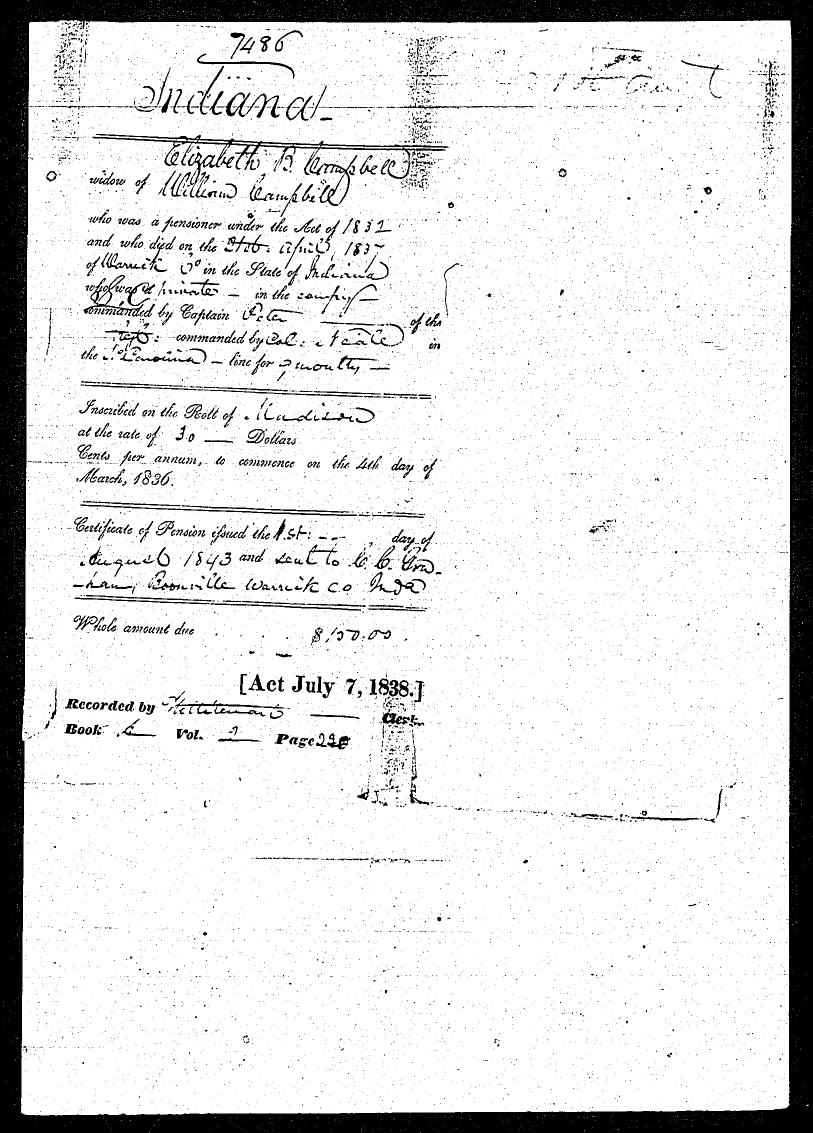 7486
Indiana
Elizabeth B. Campbell
widow of William Campbell
who was a pensioner under the Act of 1832
and who died on the April, 1837
of Warrick Co in the State of Indiana
who was a private in the compy
commanded by Captain of the
Regt: commanded by Col: Neale in
the No Carolina line for 9 months
Inscribed on the Roll of Madison
at the rate of 30 Dollars
Cents per annum, to commence on the 4th day of
March, 1836.
Certificate of Pension issued the 1st: day of
August 1843 and sent to C. C. Gra-
-ham, Boonville Warrick Co Inda
Whole amount due $150.00.
[Act July 7, 1838.]
Recorded by Clerk.
Book Vol. Page